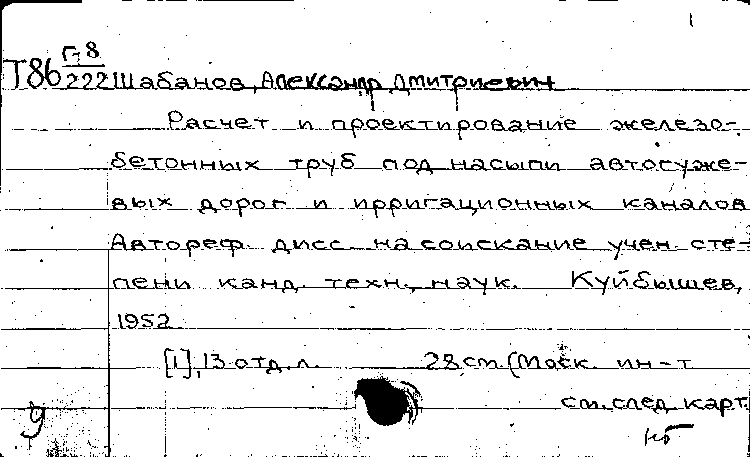 1
Г-8
Т86 222 Шабанов, Александр Дмитриевич
Расчет и проектирование железо-
бетонных труб под насыпи автогуже-
вых дорог и ирригационных каналов
Автореф. дисс. на соискание учен. сте-
пени канд. техн. наук. Куйбышев,
1952
[1], 13 отд. л. 28 см. (Моск. ин-т
см. след. карт.
у
нб